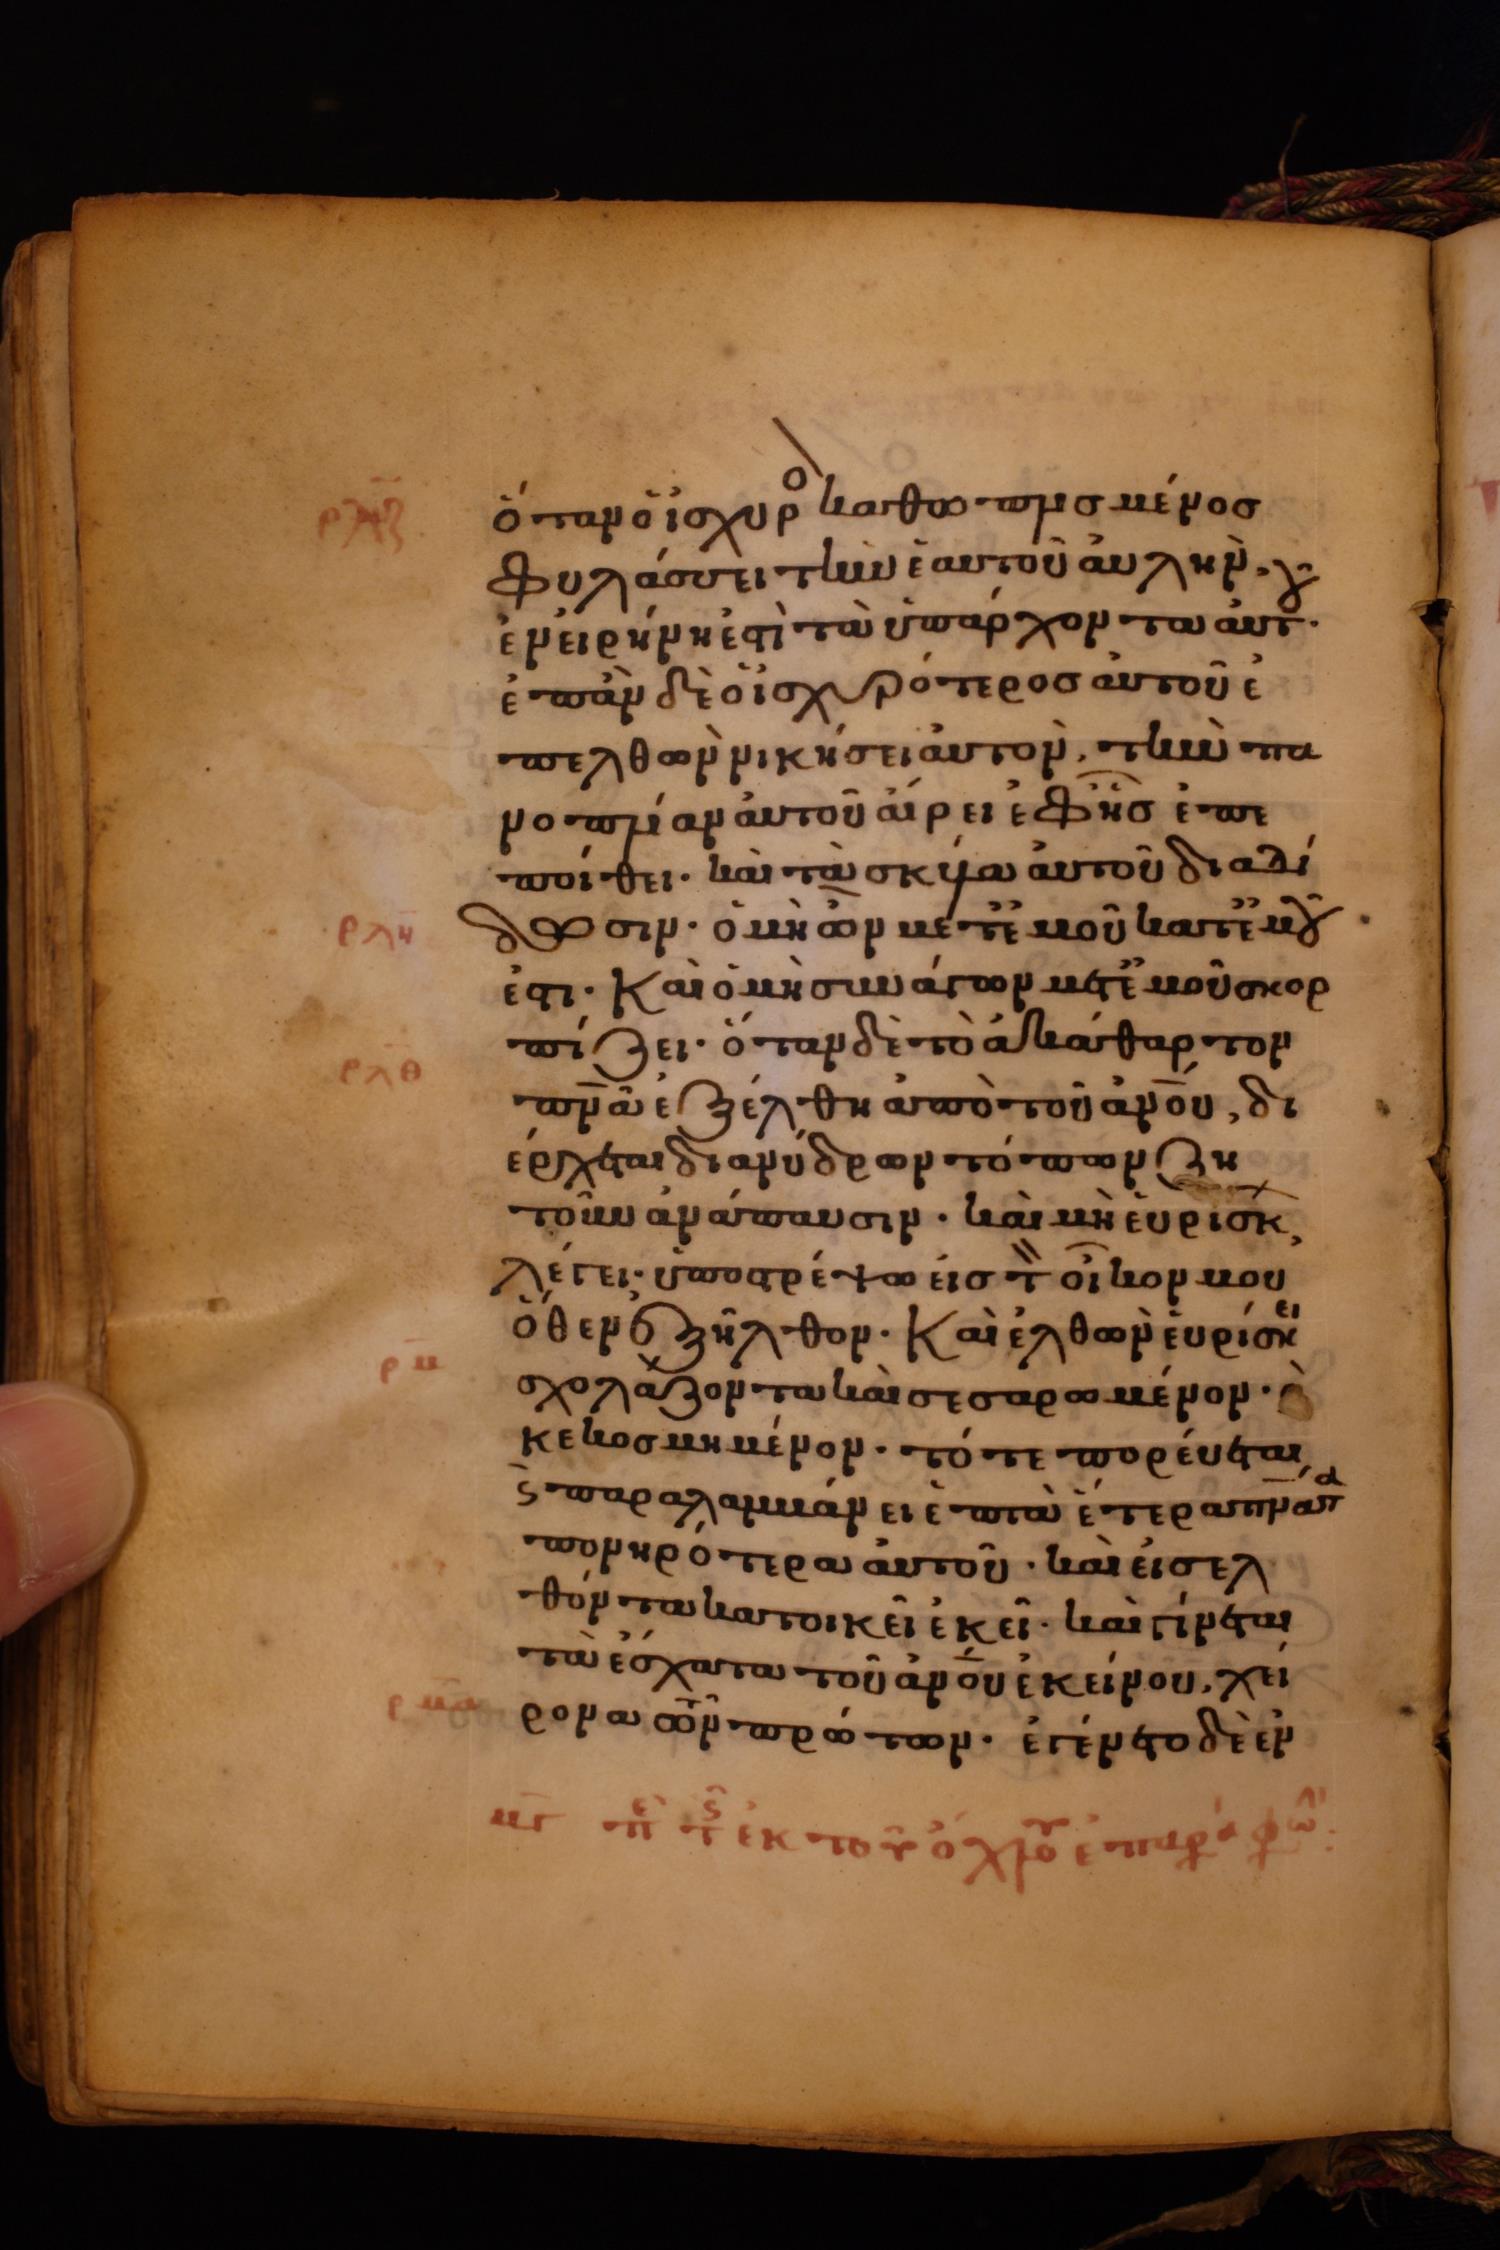 ρλζ
ὅταν ὁ ἰσχυρὸ καθωπλισμένος
φυλάσσει τὴν ἑαυτοῦ αὐλὴν,
ἐν εἰρήνη ἐστὶ τὰ ὑπάρχοντα αὐτ.
ἐπὰν δὲ ὁ ἰσχυρότερος αὐτοῦ ἐ
πελθὼν νικήσει αὐτὸν, τὴν πα
νοπλίαν αὐτοῦ αἴρει ἐφ ἧς ἐπε
ποίθει. καὶ τὰ σκῦλα αὐτοῦ διαδί
ρλη
δωσιν. ὁ μὴ ὢν μετ ἐμοῦ κατ ἐμοῦ
ἐστι. Καὶ ὁ μὴ συνάγων μετ ἐμοῦ σκορ
πίζει. ὅταν δὲ τὸ ἀκάθαρτον
ρλθ
πνα ἐξέλθη ἀπὸ τοῦ ἀνου, δι
έρχεται δι ανύδρων τόπων ζη
τοῦν ἀνάπαυσιν. καὶ μὴ εὑρισκ,
λέγει. ὑποστρέψω εἰς τ οἶκον μου
ὅθεν ἐξῆλθον. Καὶ ἐλθὼν εὑρίσκει
ρμ
σχολάζοντα καὶ σεσαρωμένον.
κεκοσμημένον. τότε πορεύεται
καὶ παραλαμβάνει ἑπτὰ ἕτερα πνα
πονηρότερα αὐτοῦ. καὶ εἰσελ
θόντα κατοικεῖ ἐκεῖ. καὶ γίνεται
τὰ ἔσχατα τοῦ ἀνου ἐκείνου, χεί
ρμα
ρονα τῶν πρώτων. ἐγένετο δὲ ἐν
μγ π τ ἐκ του ὄχλου